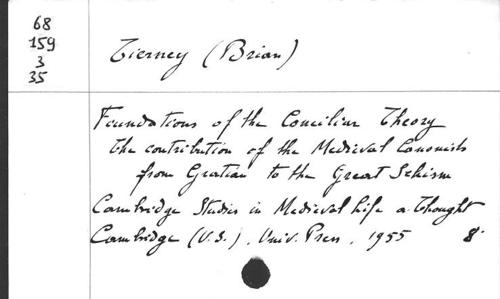 68
159
3
35
Tierney (Brian)
Foundations of the Conciliar Theory
the contribution of the Medieval Canonists
from Gratian to the Great Schism
Cambridge Studies in Medieval Life a. Thought
Cambridge (U.S.), Univ. Press, 1955 8°